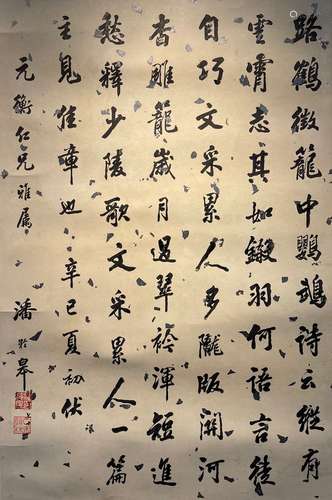 路鶴徵籠中鸚鵡詩云縱有
雲霄志其如鎩羽何語言徒
自巧文采累人多隴版開河
杳雕籠歲月過翠衿渾短進
愁釋少陵歌文采累人一篇
主見佳章也辛巳夏初伏
元衡仁兄雅属
潘齡皋